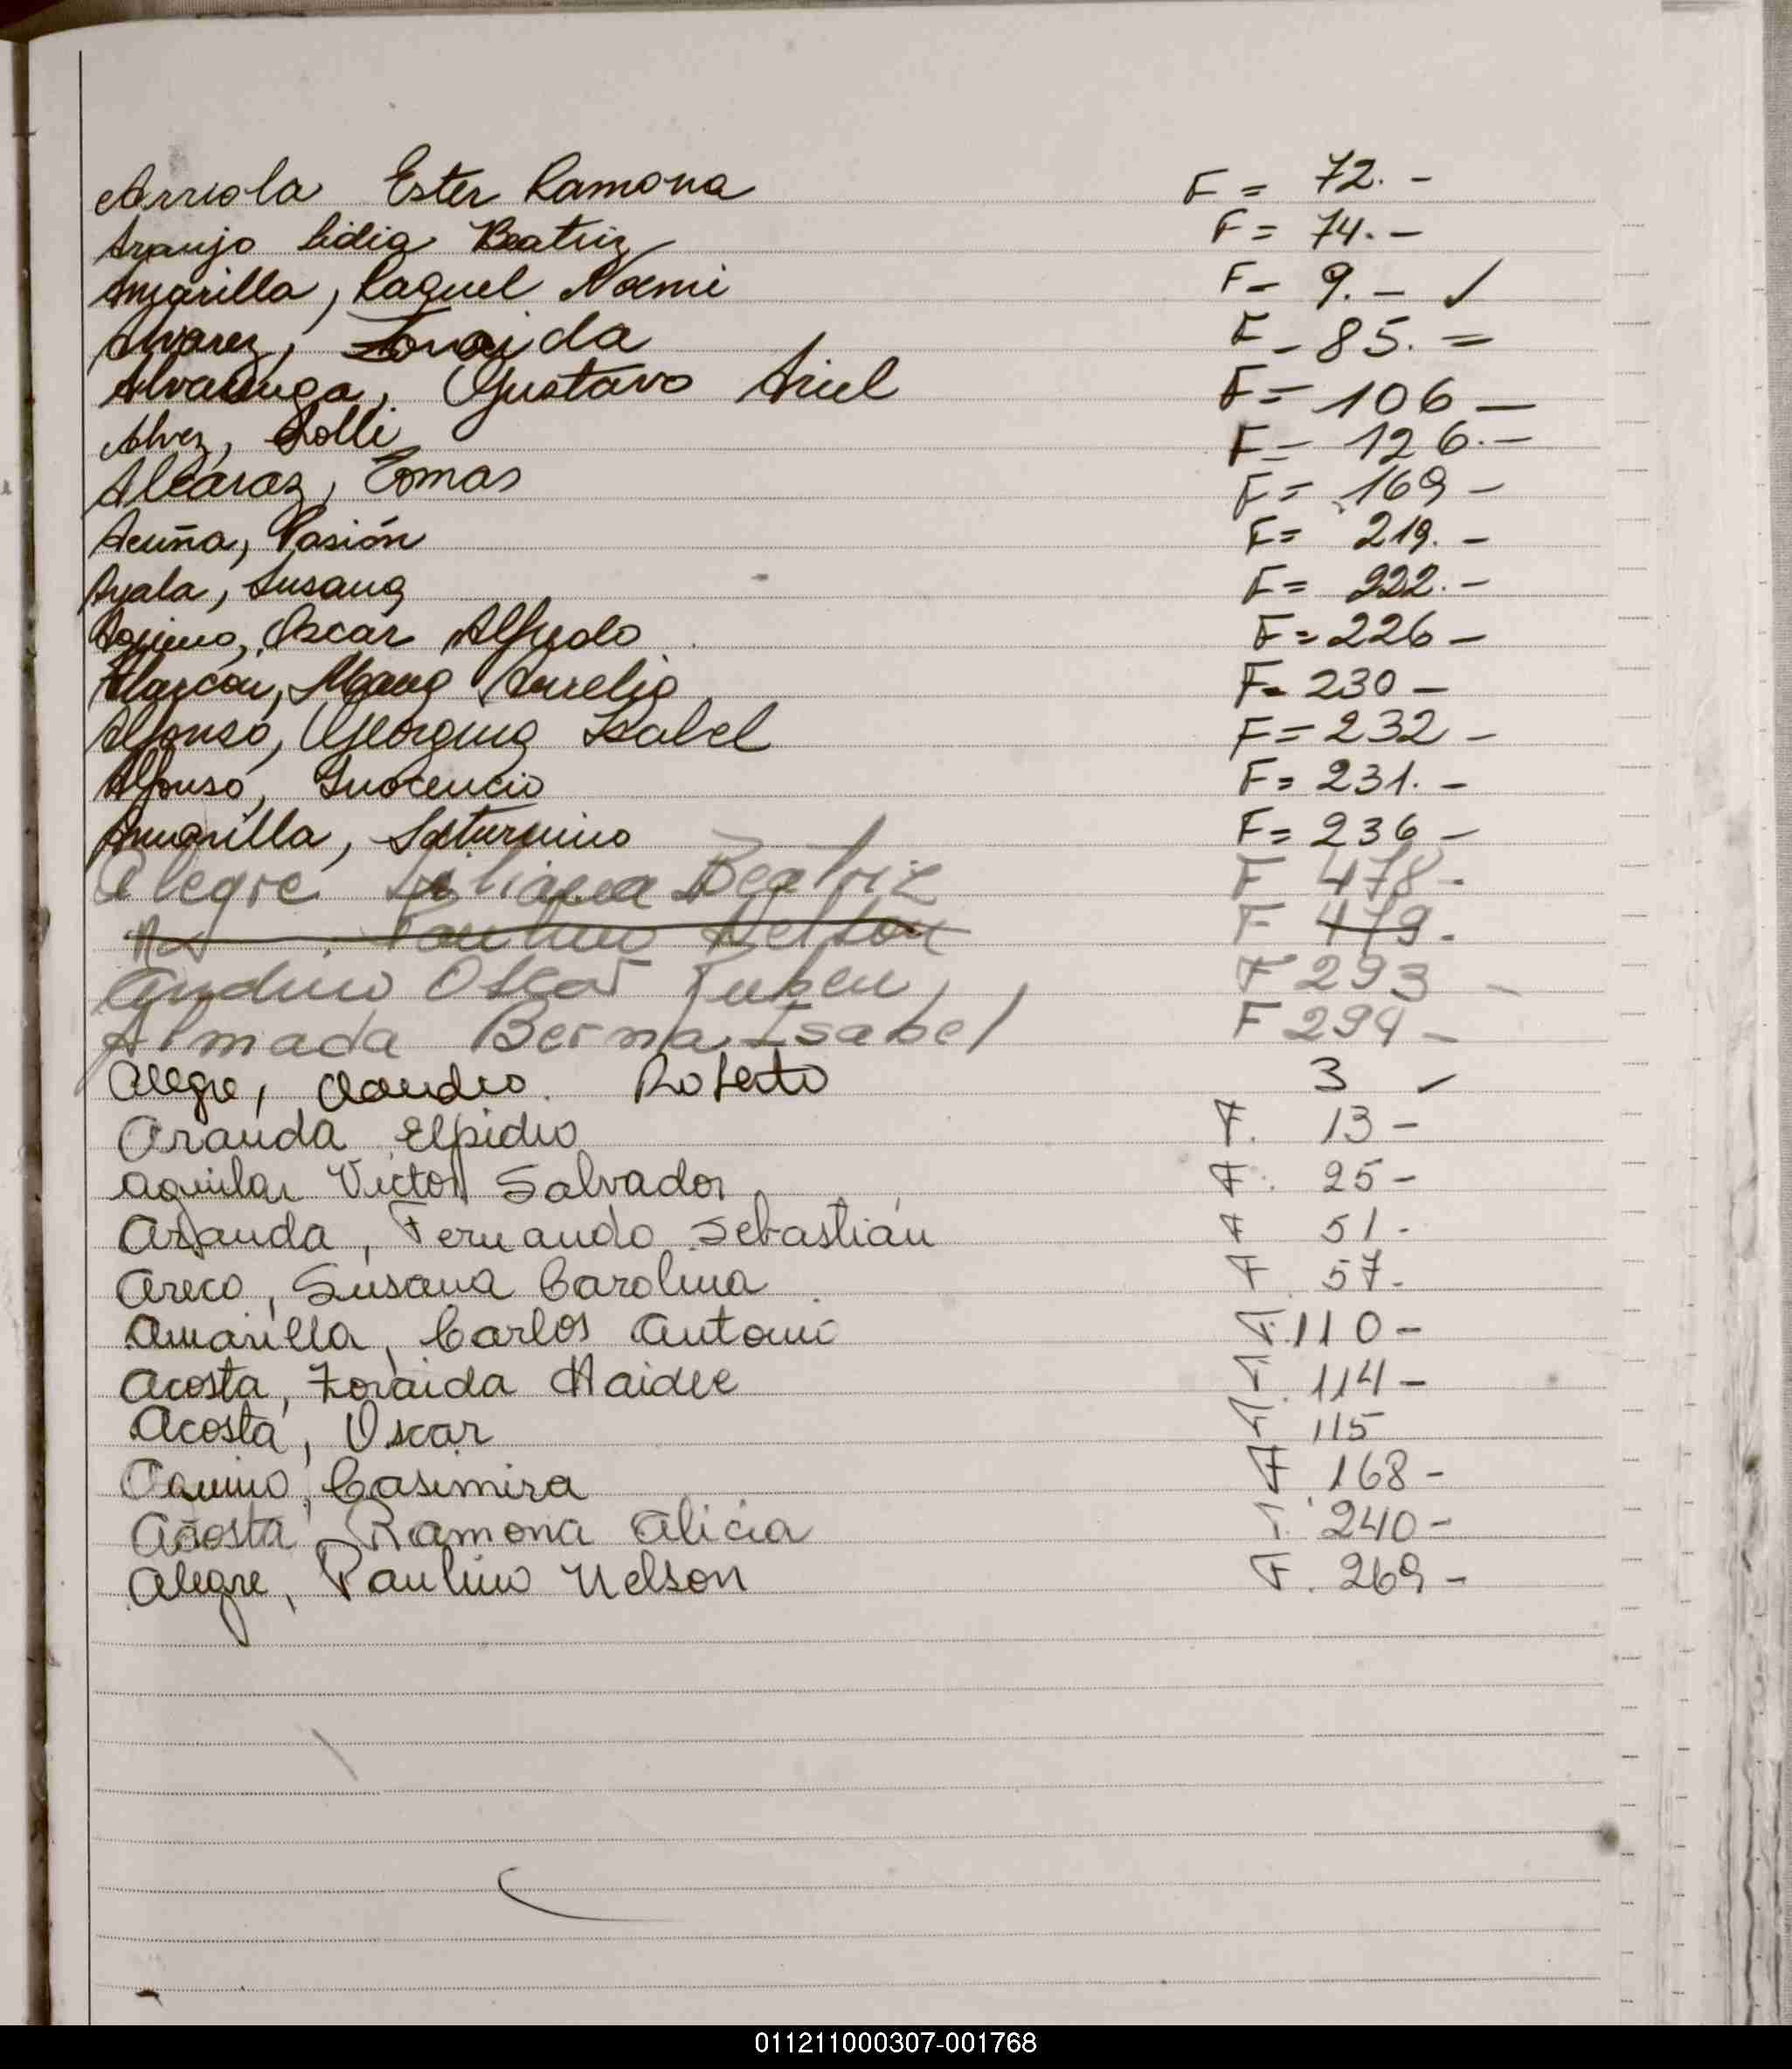 Arriola Ester Ramona F = 72. -
Araujo Lidia Beatriz F = 74. -
Amarilla, Raquel Noemi F - 9. - ✓
Alvarez, Zoraida F - 85. =
Alvarenga, Gustavo Ariel F = 106 -
Alvez, Lolli F = 126. -
Alcaraz, Tomas F = 169 -
Acuña, Pasión F = 219. -
Ayala, Susana F = 222. -
Aquino, Oscar Alfredo F = 226 -
Alarcón, María Aurelia F = 230 -
Alfonso, Georgina Isabel F = 232 -
Alfonso, Inocencio F = 231. -
Amarilla, Saturnino F = 236 -
Alegre Liliana Beatriz F 478 -
Paulino Nelson F 479 -
Andino Oscar Ruben, F 293 -
Almada Berna Isabel F 294 -
Alegre, Claudio Roberto 3 ✓
Aranda Elpidio F. 13 -
Aguilar Victor Salvador F. 25 -
Aranda, Fernando Sebastián F 51 -
Areco, Susana Carolina F 57 -
Amarilla, Carlos Antoni F. 110 -
Acosta, Zoraida Haidee F. 114 -
Acosta, Oscar F. 115
Aquino, Casimira F 168 -
Acosta Ramona Alicia F. 240 -
Alegre, Paulino Nelson F. 269 -
011211000307-001768